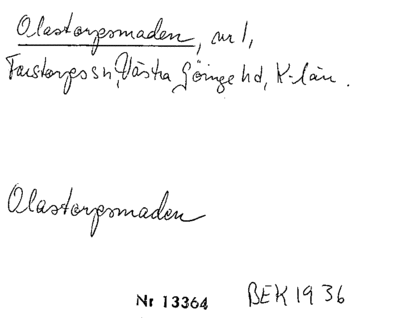 Olastorpsmaden, nr 1,
Farstorps sn, Västra Göinge hd, K-län.
Olastorpsmaden
Nr 13364 BEK 1936